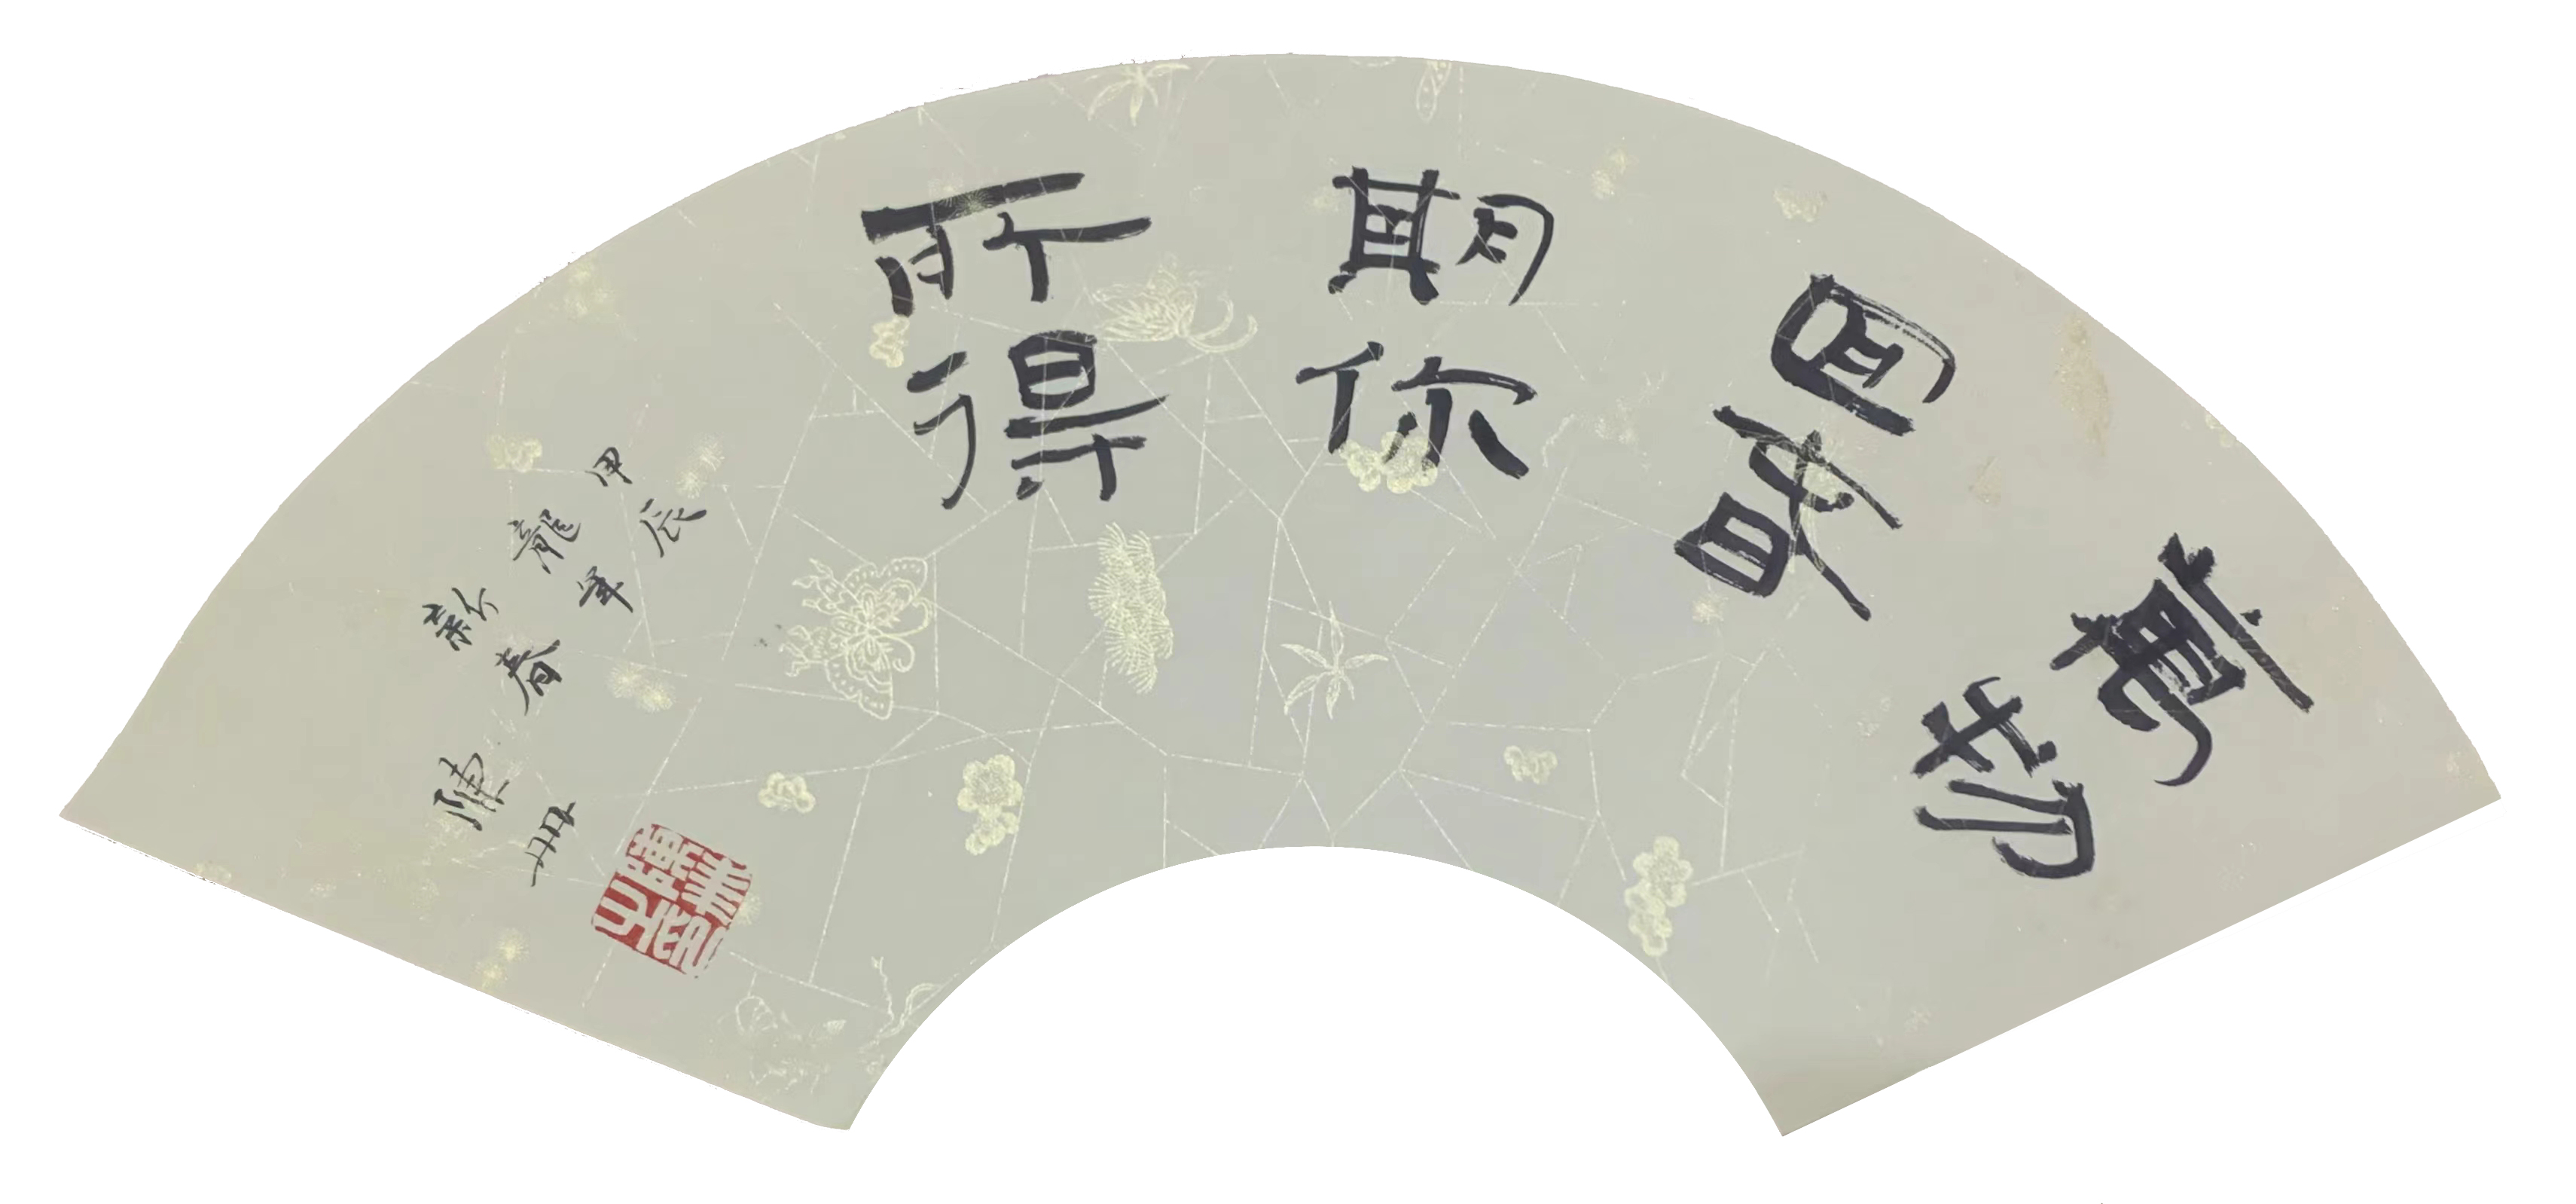 萬物
回春
期你
所得
甲辰
龍年
新春
陳